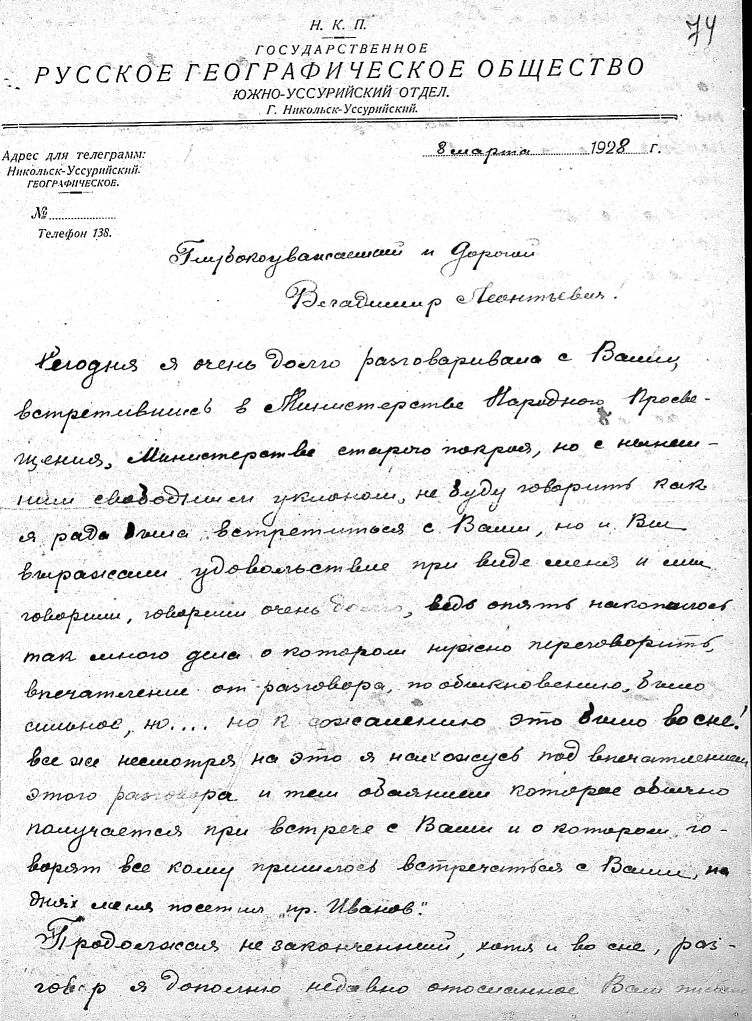 74
Н. К. П.
ГОСУДАРСТВЕННОЕ
РУССКОЕ ГЕОГРАФИЧЕСКОЕ ОБЩЕСТВО
ЮЖНО-УССУРИЙСКИЙ ОТДЕЛ.
Г. Никольск-Уссурийский.
Адрес для телеграмм:
Никольск-Уссурийский.
ГЕОГРАФИЧЕСКОЕ.
8 марта 1928 г.
№
Телефон 138.
Глубокоуважаемый и дорогой
Владимир Леонтьевич!
Сегодня я очень долго разговаривала с Вами,
встретившись в Министерстве Народного Просве-
щения, Министерстве старого покроя, но с нынеш-
ним свободным уклоном, не буду говорить как
я рада была встретиться с Вами, но и Вы
выражали удовольствие при виде меня и мы
говорили, говорили очень долго, ведь опять накопилось
так много дела о котором нужно переговорить,
впечатление от разговора, по обыкновению, было
сильное, но.... но к сожалению это было во сне!
все же несмотря на это я нахожусь под впечатлением
этого разговора и тем обаянием которое обычно
получается при встрече с Вами и о котором го-
ворят все кому пришлось встречаться с Вами, на
днях меня посетил "пр. Иванов".
Продолжая не законченный, хотя и во сне, раз-
говор я дополню недавно отосланное Вам письмо